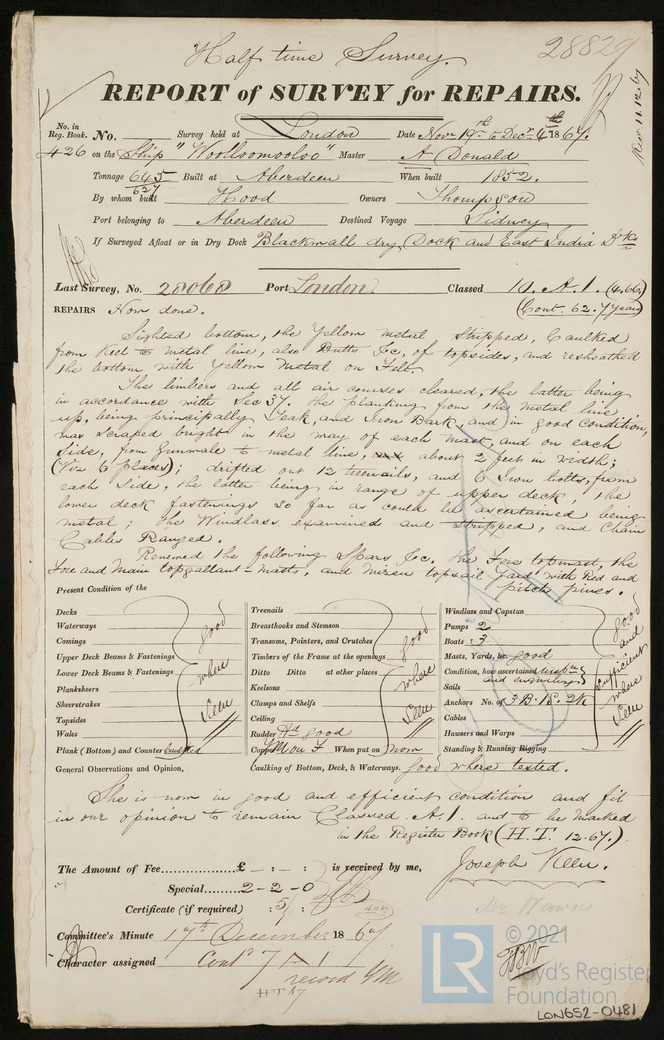 Half time Survey.
28829
REPORT of SURVEY for REPAIRS.
Rec 11.12.67
No. in Reg. Book. No. Survey held at London Date Novr 19th to Decr 4th 1867.
426 on the Ship "Woolloomooloo" Master A Donald
Tonnage 645 Built at Aberdeen When built 1852.
627
By whom built Hood Owners Thompson
Port belonging to Aberdeen Destined Voyage Sidney
If Surveyed Afloat or in Dry Dock Blackwall dry Dock and East India Dks
Last Survey, No. 28068 Port London Classed 10. A.1. (4.66)
(Cont. 62. 7 Years)
REPAIRS Now done.
Sighted bottom, the Yellow metal Stripped, Caulked
from Keel to metal line, also Butts &c, of topsides, and resheathed
the bottom with Yellow Metal on Felt.
The limbers and all air courses cleared, the latter being
in accordance with Sec 37. the planking from the metal line
up, being principally Teak, and Iron Bark, and in good condition,
was scraped bright in the way of each mast, and on each
Side, from Gunwale to metal line, about 2 feet in width;
(Viz 6 places); drifted out 12 treenails, and 6 Iron bolts, from
each Side, the latter being in range of upper deck, the
lower deck fastenings so far as could be ascertained being
metal; the Windlass examined and stripped, and Chain
Cables Ranged.
Renewed the following Spars &c. the Fore topmast, the
Fore and Main topgallant-masts, and mizen topsail yard, with Red and
pitch pines.
Present Condition of the
Decks
Waterways
Comings
Upper Deck Beams & Fastenings
Lower Deck Beams & Fastenings
Planksheers
Sheerstrakes
Topsides
Wales
good where Seen
Plank (Bottom) and Counter Caulked
Treenails
Breasthooks and Stemson
Transoms, Pointers, and Crutches
Timbers of the Frame at the openings
Ditto Ditto at other places
Keelsons
Clamps and Shelfs
Ceiling
good where Seen
Rudder good
Copper YM on F When put on now
Windlass and Capstan
Pumps 2
Boats 3
Masts, Yards, &c. good
Condition, how ascertained
and enquiring
Sails
Anchors No. of 3B. 1S. 2K
Cables
Hausers and Warps
Standing & Running Rigging
good and Sufficient where Seen
General Observations and Opinion,
Caulking of Bottom, Deck, & Waterways. Good where tested.
She is now in good and efficient condition and fit
in our opinion to remain Classed A.1. and to be marked
in the Register Book (H.T. 12.67.)
The Amount of Fee £ - : - : is received by me,
Special 2-2-0
Certificate (if required) : 5/ :
Joseph Keen.
Committee's Minute 17th December 1867
Character assigned Contd 7 A 1
record YM
HT 67
© 2021
LR
Lloyd's Register
Foundation
LON652-0481